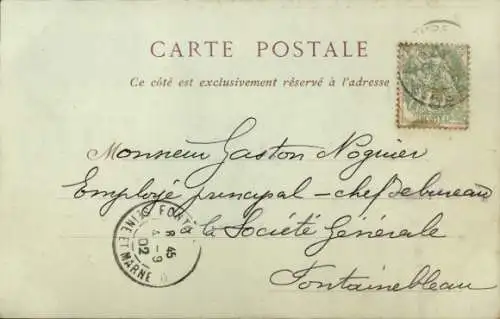 CARTE POSTALE
Ce côté est exclusivement réservé à l'adresse
Monsieur Gaston Noguier
Employé principal - chef de bureau
à la Société Générale
Fontainebleau
8 45
4-9
02
SEINE ET MARNE